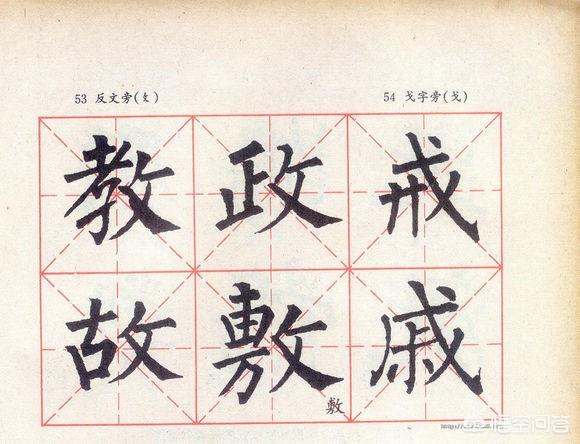 53 反文旁(攵) 54 戈字旁(戈)
教 政 戒
故 敷 戚
敷
悟空问答